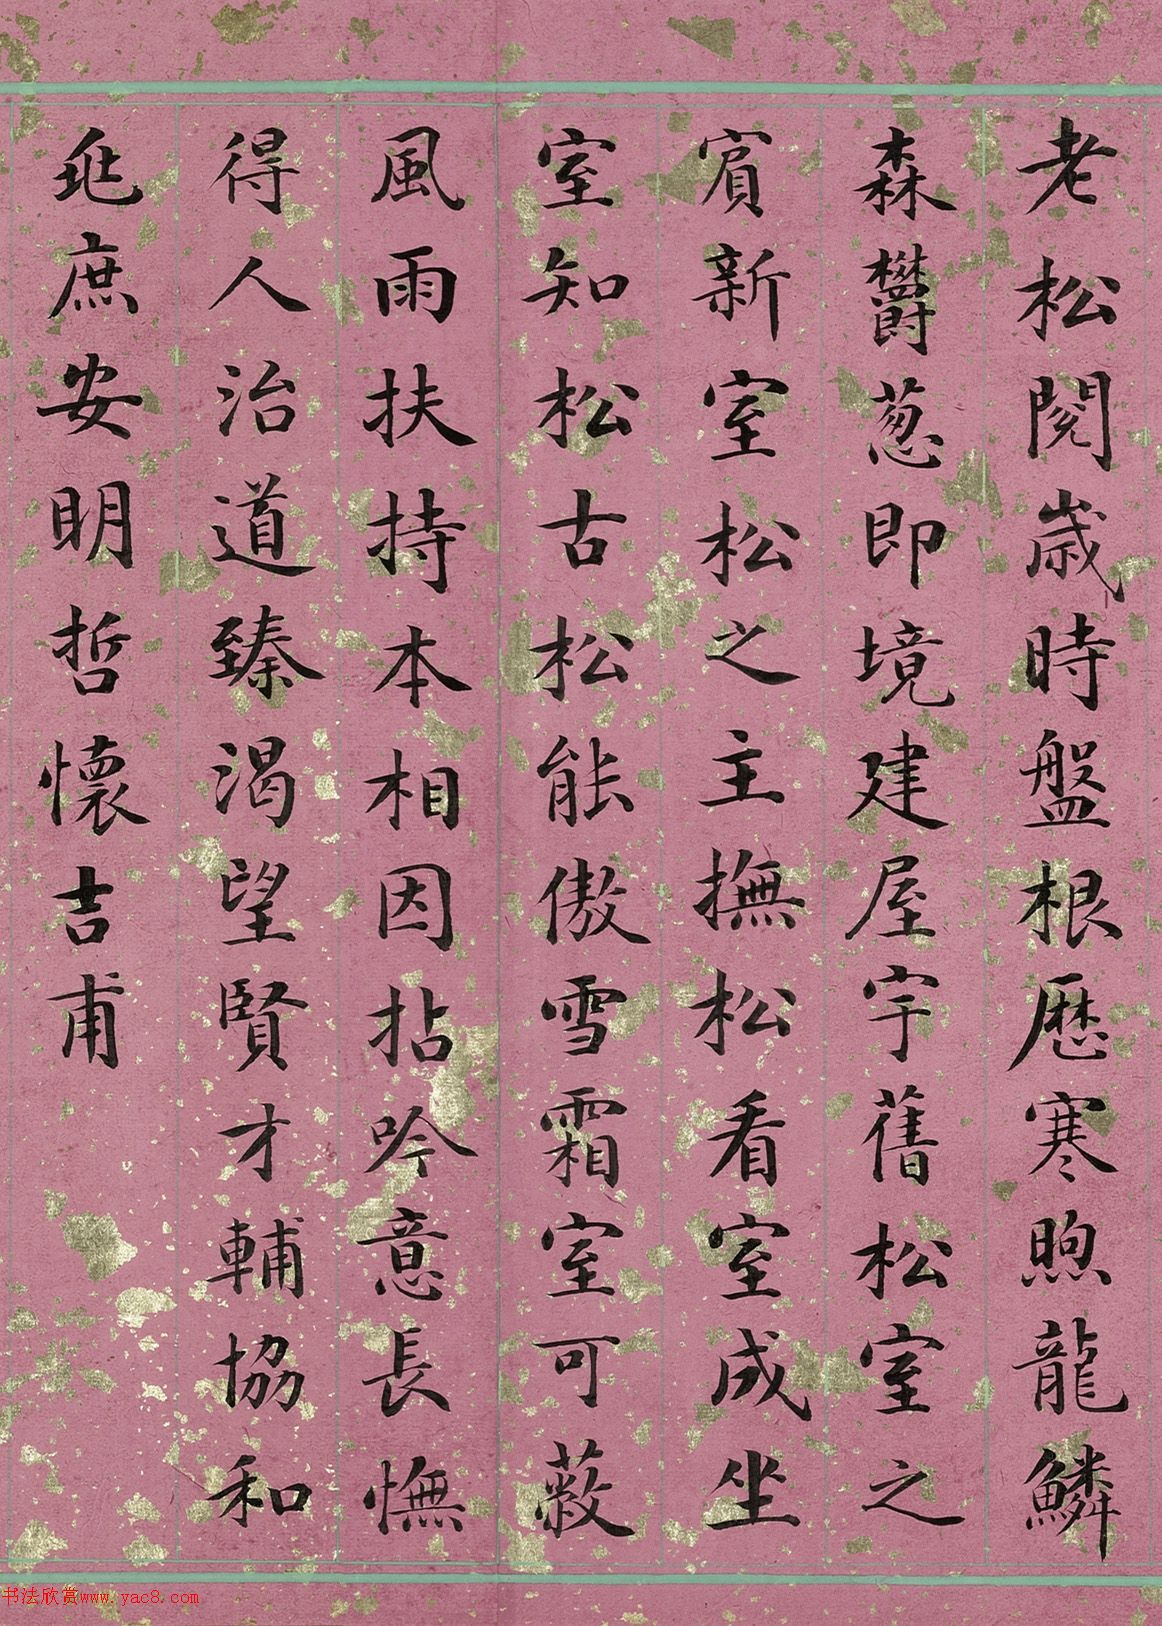 老松閱歲時盤根歷寒煦龍鱗
森欝葱即境建屋宇舊松室之
賓新室松之主撫松看室成坐
室知松古松能傲雪霜室可蔽
風雨扶持本相因拈吟意長憮
得人治道臻渴望賢才輔協和
兆庶安明哲懷吉甫
书法欣赏www.yac8.com